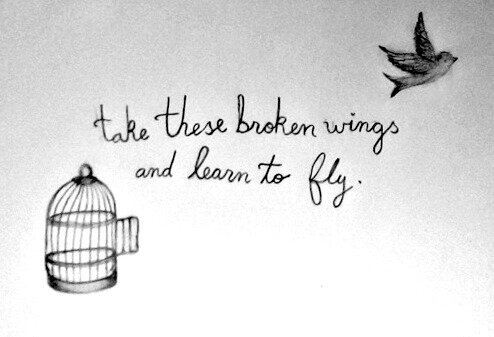 take these broken wings
and learn to fly.